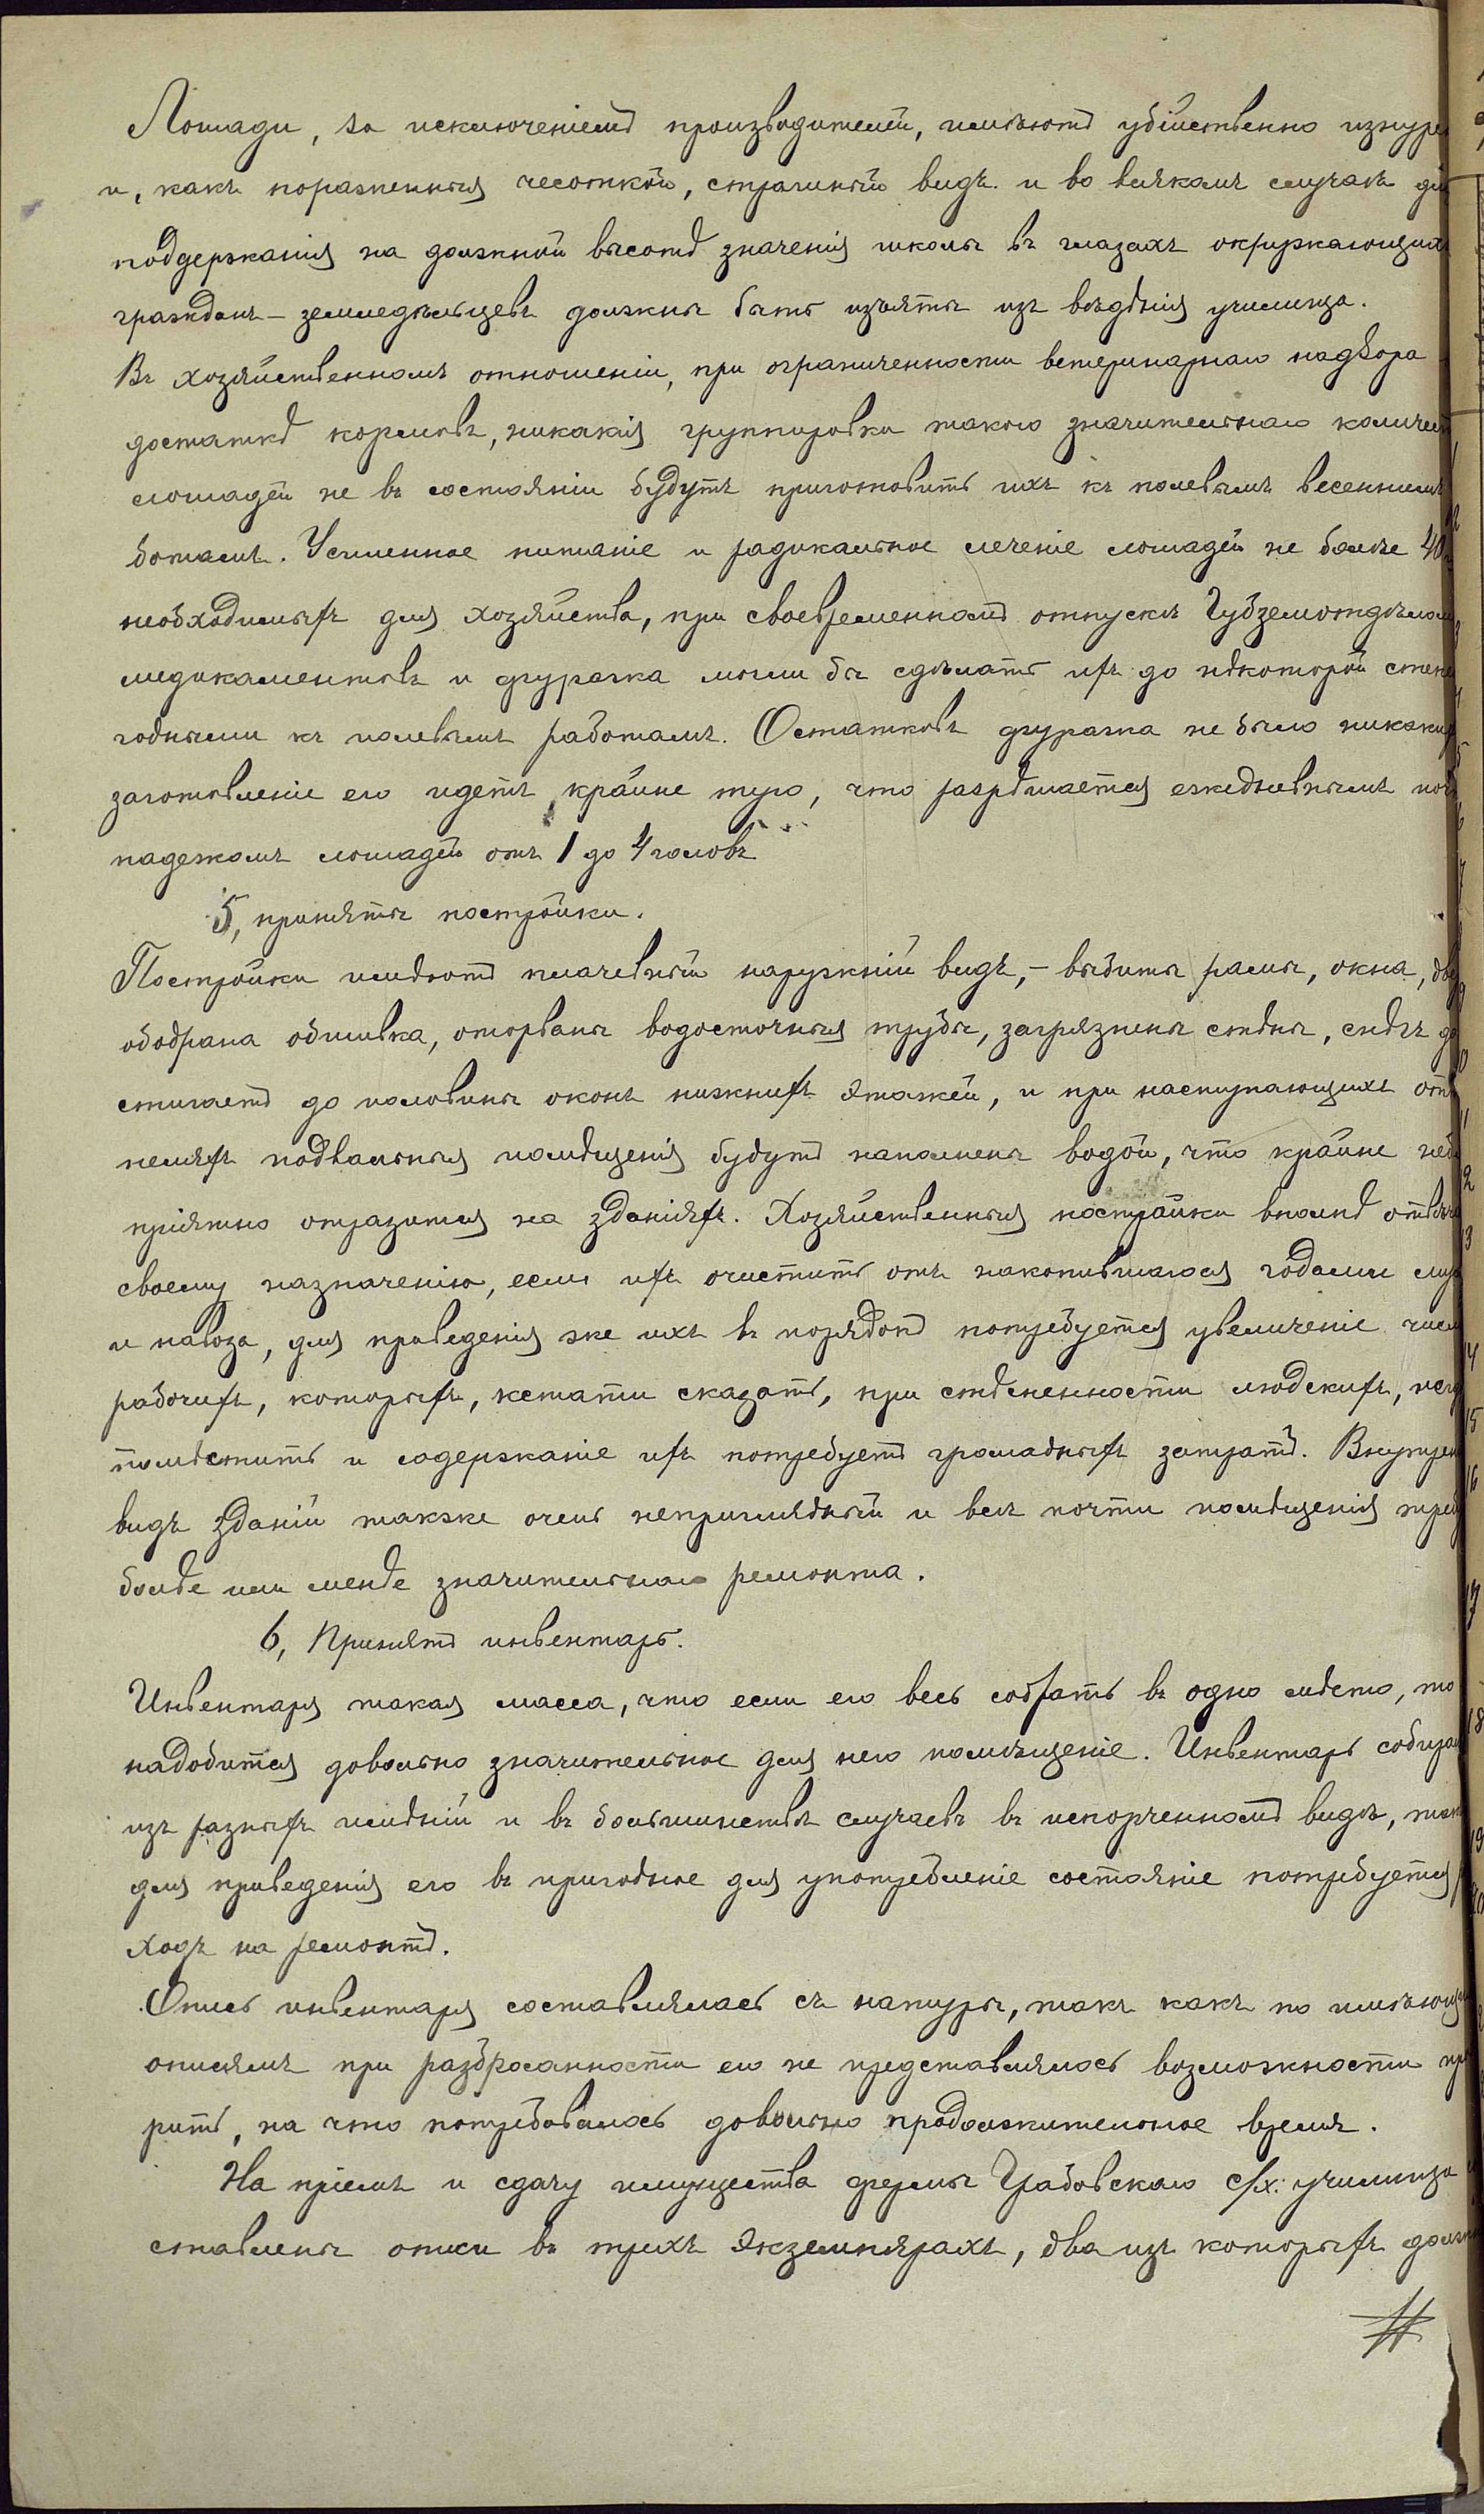 Лошади, за исключеніемъ производителей, имѣютъ убійственно изнуре
и, какъ пораженныя чесоткой, страшный видъ и во всякомъ случаѣ для
поддержанія на должной высотѣ значенія школы въ глазахъ окружающихъ
гражданъ – земледѣльцевъ должны быть изъяты изъ вѣдѣнія училища.
Въ хозяйственномъ отношеніи, при ограниченности ветеринарнаго надзора
достаткѣ кормовъ, никакія группировки такого значительнаго количест
лошадей не въ состояніи будутъ приготовить ихъ къ полевымъ весеннимъ
ботамъ. Усиленное питаніе и радикальное леченіе лошадей не болѣе 40
необходимыхъ для хозяйства, при своевременномъ отпускѣ Губземотдѣлом
медикаментовъ и фуража могли бы сдѣлать ихъ до нѣкоторой степе
годными къ полевымъ работамъ. Остатковъ фуража не было никаких
заготовленіе его идетъ крайне туго, что разрѣшается ежедневнымъ поч
падежомъ лошадей отъ 1 до 4 головъ
5, приняты постройки.
Постройки имѣютъ плачевный наружній видъ, – выбиты рамы, окна, две
ободрана обшивка, оторваны водосточныя трубы, загрязнены стѣны, снѣгъ до
стигаетъ до половины оконъ нижнихъ этажей, и при наступающихъ отт
пеляхъ подвальныя помѣщенія будутъ наполнены водой, что крайне небл
пріятно отразится на зданіяхъ. Хозяйственныя постройки вполнѣ отвѣча
своему назначенію, если ихъ очистить отъ накопившагося годами мус
и навоза, для приведенія же ихъ въ порядокъ потребуется увеличеніе числ
рабочихъ, которыхъ, кстати сказать, при стѣсненности людскихъ, нег
помѣстить и содержаніе ихъ потребуетъ громадныхъ затратъ. Внутрен
видъ зданій также очень неприглядный и всѣ почти помѣщенія треб
болѣе или менѣе значительнаго ремонта.
6, Принятъ инвентарь.
Инвентаря такая масса, что если его весь собрать въ одно мѣсто, то
надобится довольно значительное для него помѣщеніе. Инвентарь собира
изъ разныхъ имѣній и въ большинствѣ случаевъ въ испорченномъ видѣ, так
для приведенія его въ пригодное для употребленіе состояніе потребуется
ходъ на ремонтъ.
Опись инвентаря составлялась съ натуры, такъ какъ по имѣющи
описямъ при разбросанности его не представлялось возможности пр
рить, на что потребовалось довольно продолжительное время.
На пріемъ и сдачу имущества фермы Грабовскаго с/х. училища
ставлены описи въ трехъ экземплярахъ, два изъ которыхъ долж